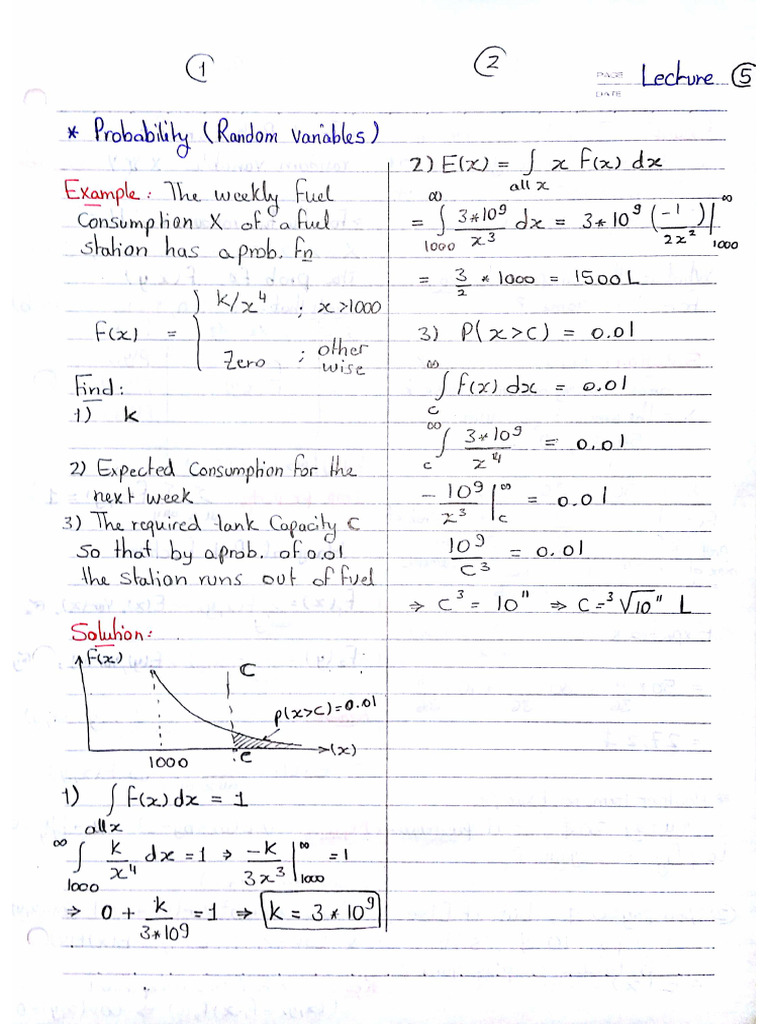 ① ② PAGE Lecture ⑤
DATE
* Probability (Random variables)
Example: The weekly Fuel
Consumption X of a fuel
station has a prob. Fn
F(x) = { k/x⁴ ; x>1000
Zero ; other wise
Find:
1) k
2) Expected Consumption for the
next week
3) The required tank Capacity C
so that by a prob. of 0.01
the station runs out of fuel
Solution:
F(x)
C
P(x>C)=0.01
1000 c (x)
1) ∫ F(x) dx = 1
all x
∞∫1000 k/x⁴ dx = 1 → -k/3x³ |∞ 1000 = 1
⇒ 0 + k/3*10⁹ = 1 ⇒ k = 3 * 10⁹
2) E(x) = ∫ x F(x) dx
all x
= ∞∫1000 3*10⁹/x³ dx = 3*10⁹ (-1/2x²)|∞ 1000
= 3/2 * 1000 = 1500 L
3) P(x>C) = 0.01
∞∫c f(x) dx = 0.01
∞∫c 3*10⁹/x⁴ = 0.01
-10⁹/x³ |∞ c = 0.01
10⁹/C³ = 0.01
⇒ C³ = 10¹¹ ⇒ C = ³√10¹¹ L